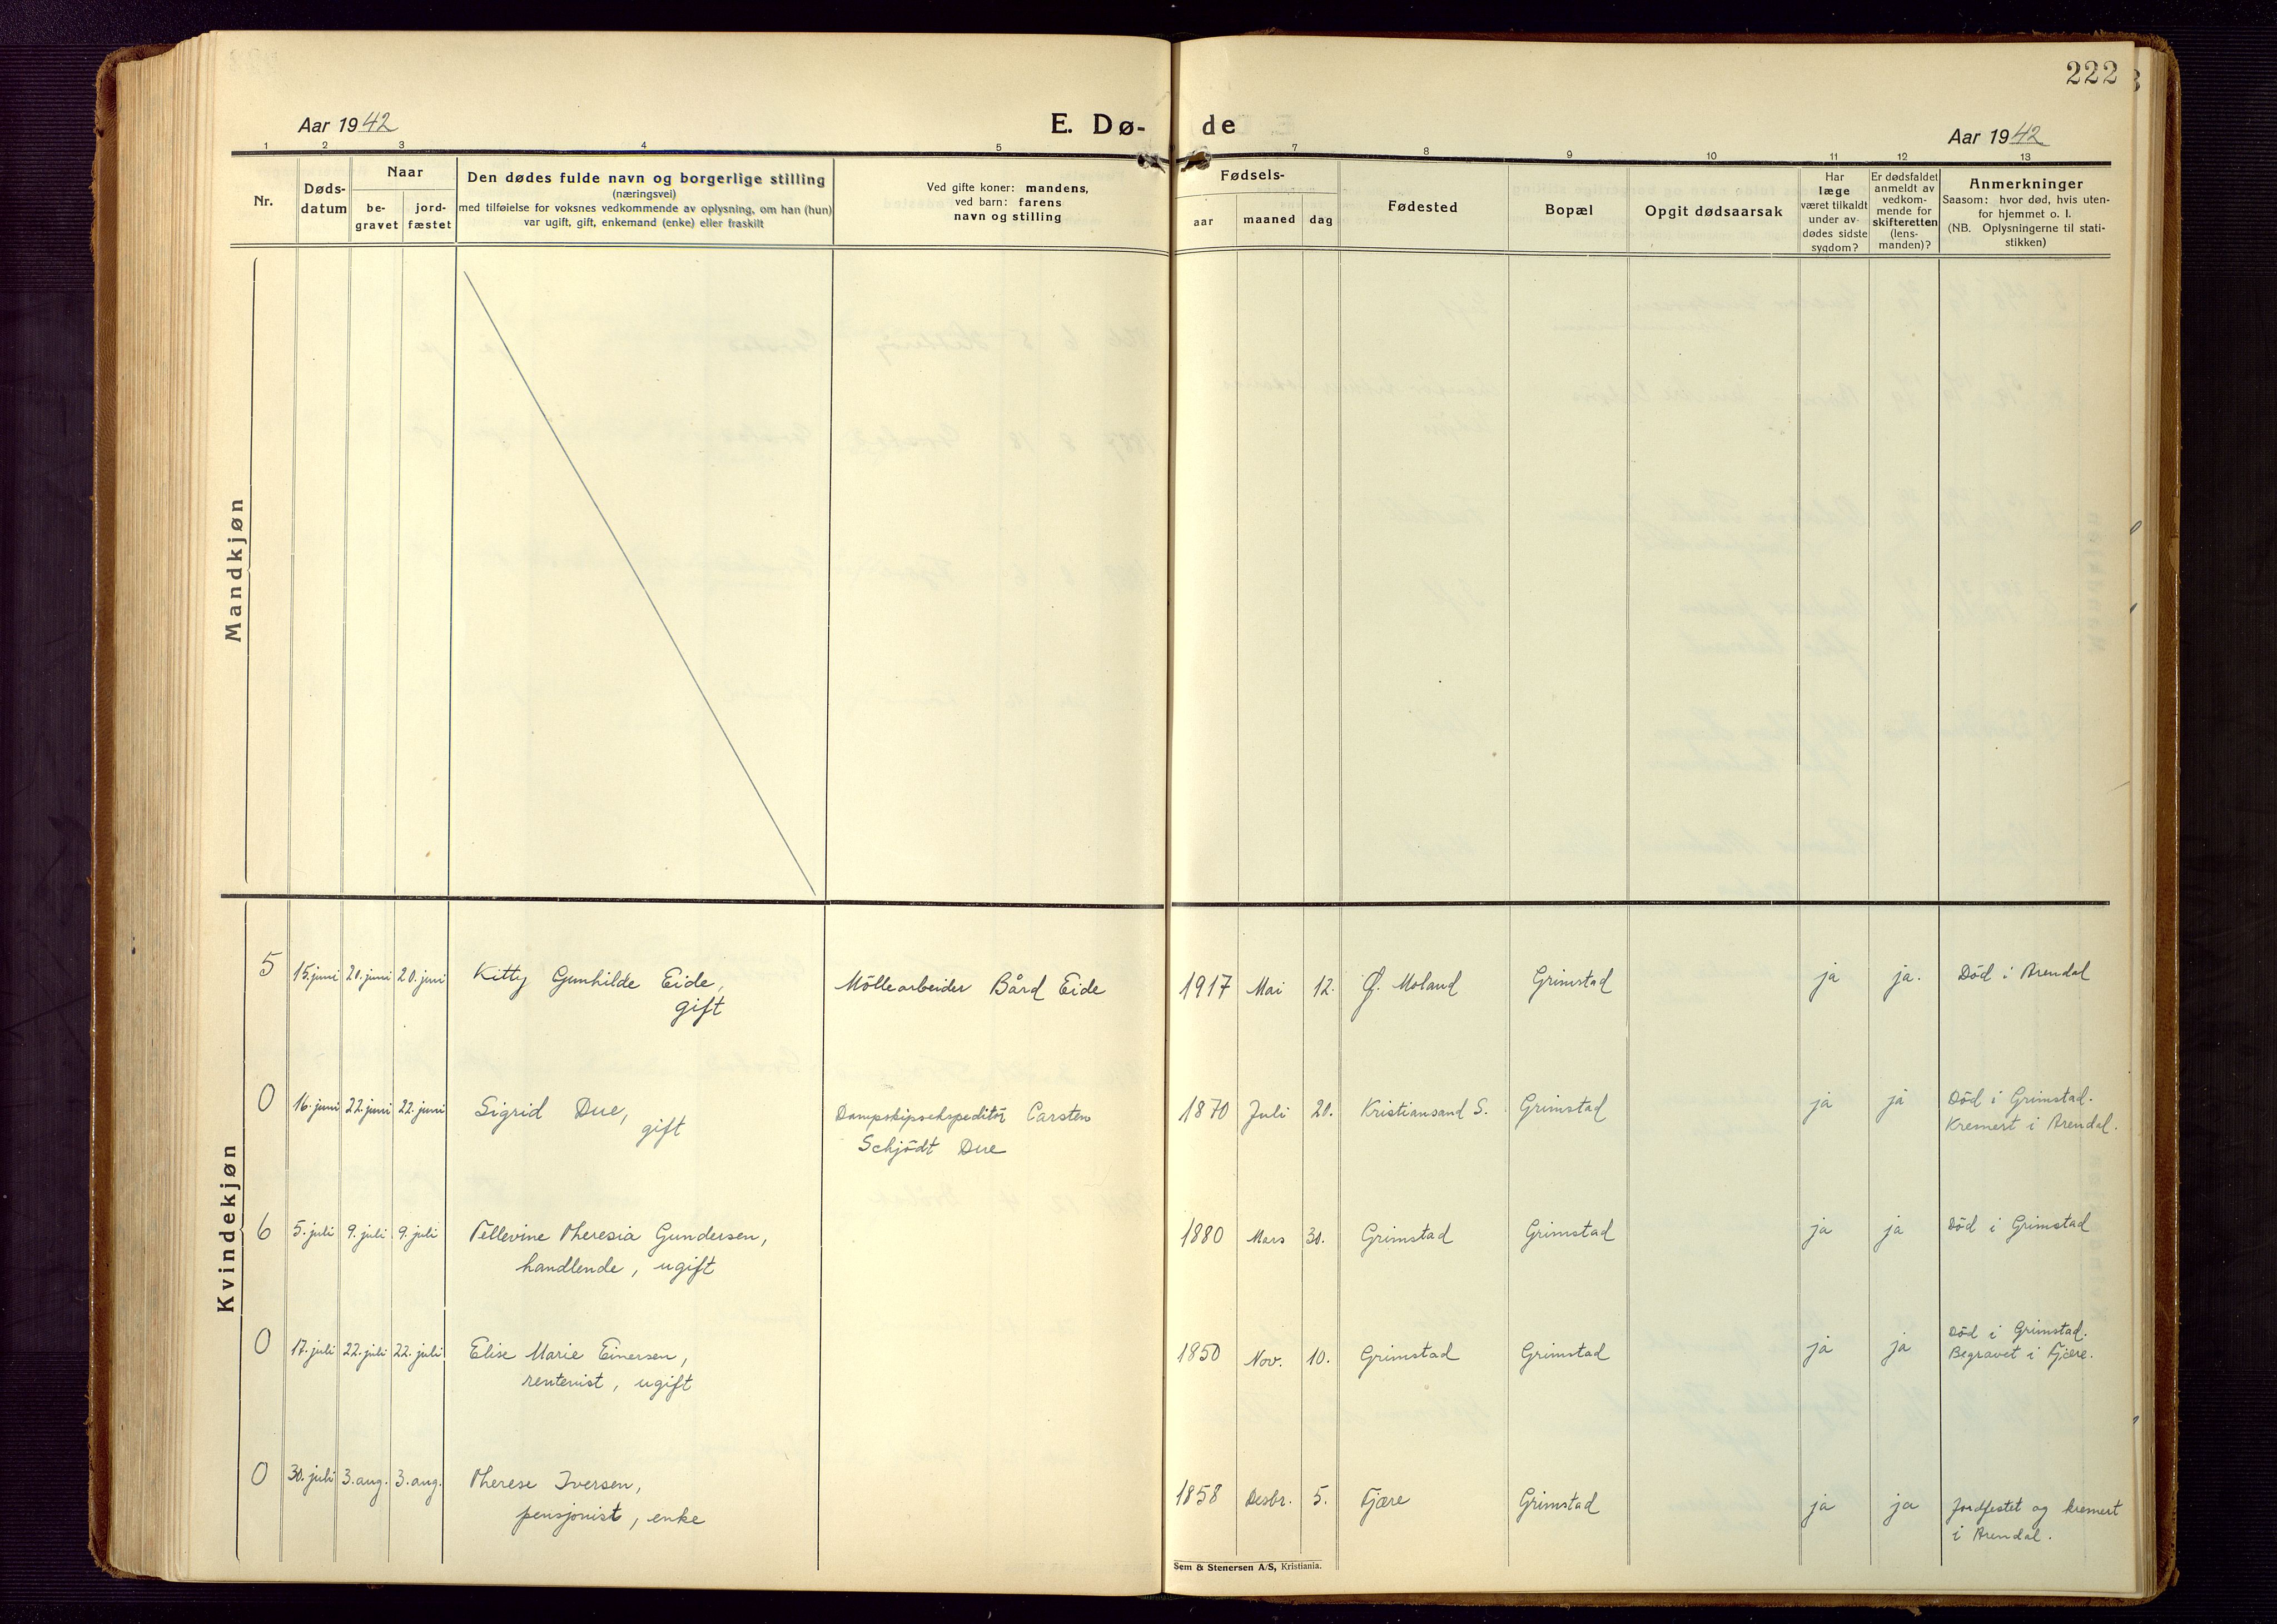 222
Aar 1942
E. Dø-
de
Aar 1942
1 2 3 4 5 7 8 9 10 11 12 13
Nr.
Døds-
datum
Naar
be-
gravet
jord-
fæstet
Den dødes fulde navn og borgerlige stilling
(næringsvei)
med tilføielse for voksnes vedkommende av oplysning, om han (hun)
var ugift, gift, enkemand (enke) eller fraskilt
Ved gifte koner: mandens,
ved barn: farens
navn og stilling
Fødsels-
aar maaned dag
Fødested
Bopæl
Opgit dødsaarsak
Har
læge
været tilkaldt
under av-
dødes sidste
sygdom?
Er dødsfaldet
anmeldt av
vedkom-
mende for
skifteretten
(lens-
manden)?
Anmerkninger
Saasom: hvor død, hvis uten-
for hjemmet o. l.
(NB. Oplysningerne til stati-
stikken)
Mandkjøn
Kvindekjøn
5 15. juni 20. juni 20. juni Kitty Gunhilde Eide, Möllearbeider Bård Eide 1917 Mai 12. Ø. Moland Grimstad ja ja. Död i Arendal
gift
0 16. juni 22. juni 22. juni Sigrid Due, Dampskipsekspeditör Carsten 1870 Juli 20. Kristiansand S. Grimstad ja ja Död i Grimstad.
gift Schjödt Due Kremert i Arendal.
6 5. juli 9. juli 9. juli Tellevine Theresia Gundersen, 1880 Mars 30. Grimstad Grimstad ja ja Död i Grimstad
handlende, ugift
0 17. juli 22. juli 22. juli Elise Marie Einersen, 1850 Nov. 10. Grimstad Grimstad ja ja Död i Grimstad.
rentenist, ugift Begravet i Fjære.
0 30. juli 3. aug. 3. aug. Therese Iversen, 1858 Desbr. 5. Fjære Grimstad ja ja Jordfestet og kremert
pensjonist, enke i Arendal.
Sem & Stenersen A/S, Kristiania.